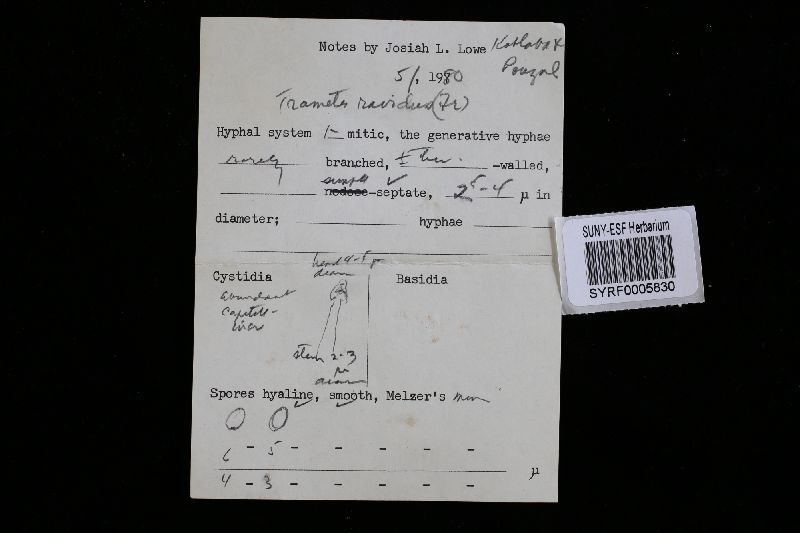 Notes by Josiah L. Lowe Kotlaba &
Pouzal
5/, 1980
Trametes ravidus (Fr)
Hyphal system 1- mitic, the generative hyphae
rarely branched, ± -walled,
simple
nodose-septate, ✓ 2⁵-4 µ in
diameter; hyphae
head 4-5 µ
diam
Cystidia Basidia
abundant
capitell-
stem 2-3
µ
diam
Spores hyaline, smooth, Melzer's
6 - 5 - - - -
µ
4 - 3 - - - -
SUNY-ESF Herbarium
SYRF0005830